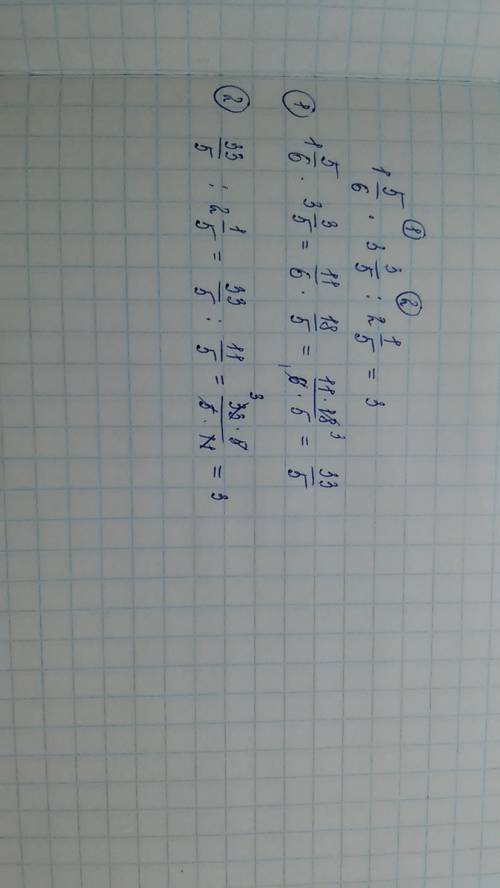 ① ②
1 5/6 · 3 3/5 : 2 1/5 = 3
① 1 5/6 · 3 3/5 = 11/6 · 18/5 = 11·18 3/1 6·5 = 33/5
② 33/5 : 2 1/5 = 33/5 : 11/5 = 3 33·5/5·11 = 3